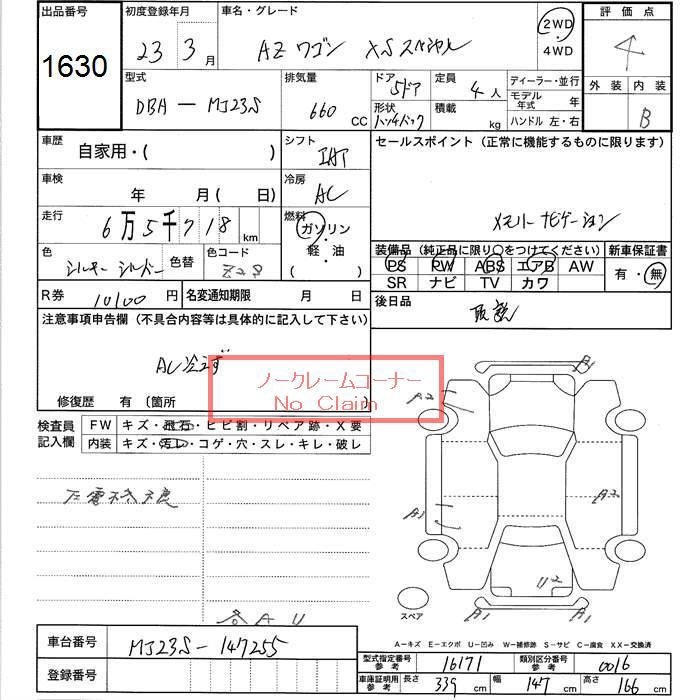 出品番号 初度登録年月 車名・グレード 2WD 評価点
1630 23 3月 AZワゴン XSスペシャル ・4WD 4
型式 排気量 ドア 5ドア 定員 4人 ディーラー・並行 外装 内装
DBA-MJ23S 660cc 形状 ハッチバック 積載 kg モデル年式 年 B
ハンドル 左・右
車歴 自家用・( ) シフト IAT セールスポイント(正常に機能するものに限ります)
車検 年 月(日) 冷房 AC
走行 6万5千718km 燃料 ガソリン メモリーナビゲーション
軽・油
( )
色 シルキーシルバー 色替 色コード Z2S 装備品(純正品に限り○をつけてください) 新車保証書
PS PW ABS エアB AW 有・無
SR ナビ TV カワ
R券 10100円 名変通知期限 月 日 後日品
注意事項申告欄(不具合内容等は具体的に記入して下さい) 取説
AC冷えず
ノークレームコーナー
No Claim
修復歴 有(箇所 )
検査員記入欄 FW キズ・飛石・ヒビ割・リペア跡・X要
内装 キズ・汚レ・コゲ・穴・スレ・キレ・破レ
A1
A2
A3 A2
U2
A1 A1
スペア
各AU
車台番号 MJ23S-147255
A-キズ E-エクボ U-凹み W-補修跡 S-サビ C-腐食 XX-交換済
登録番号
型式指定番号参考 16171 類別区分番号参考 0016
車庫証明用参考 長さ 339cm 幅 147cm 高さ 166cm